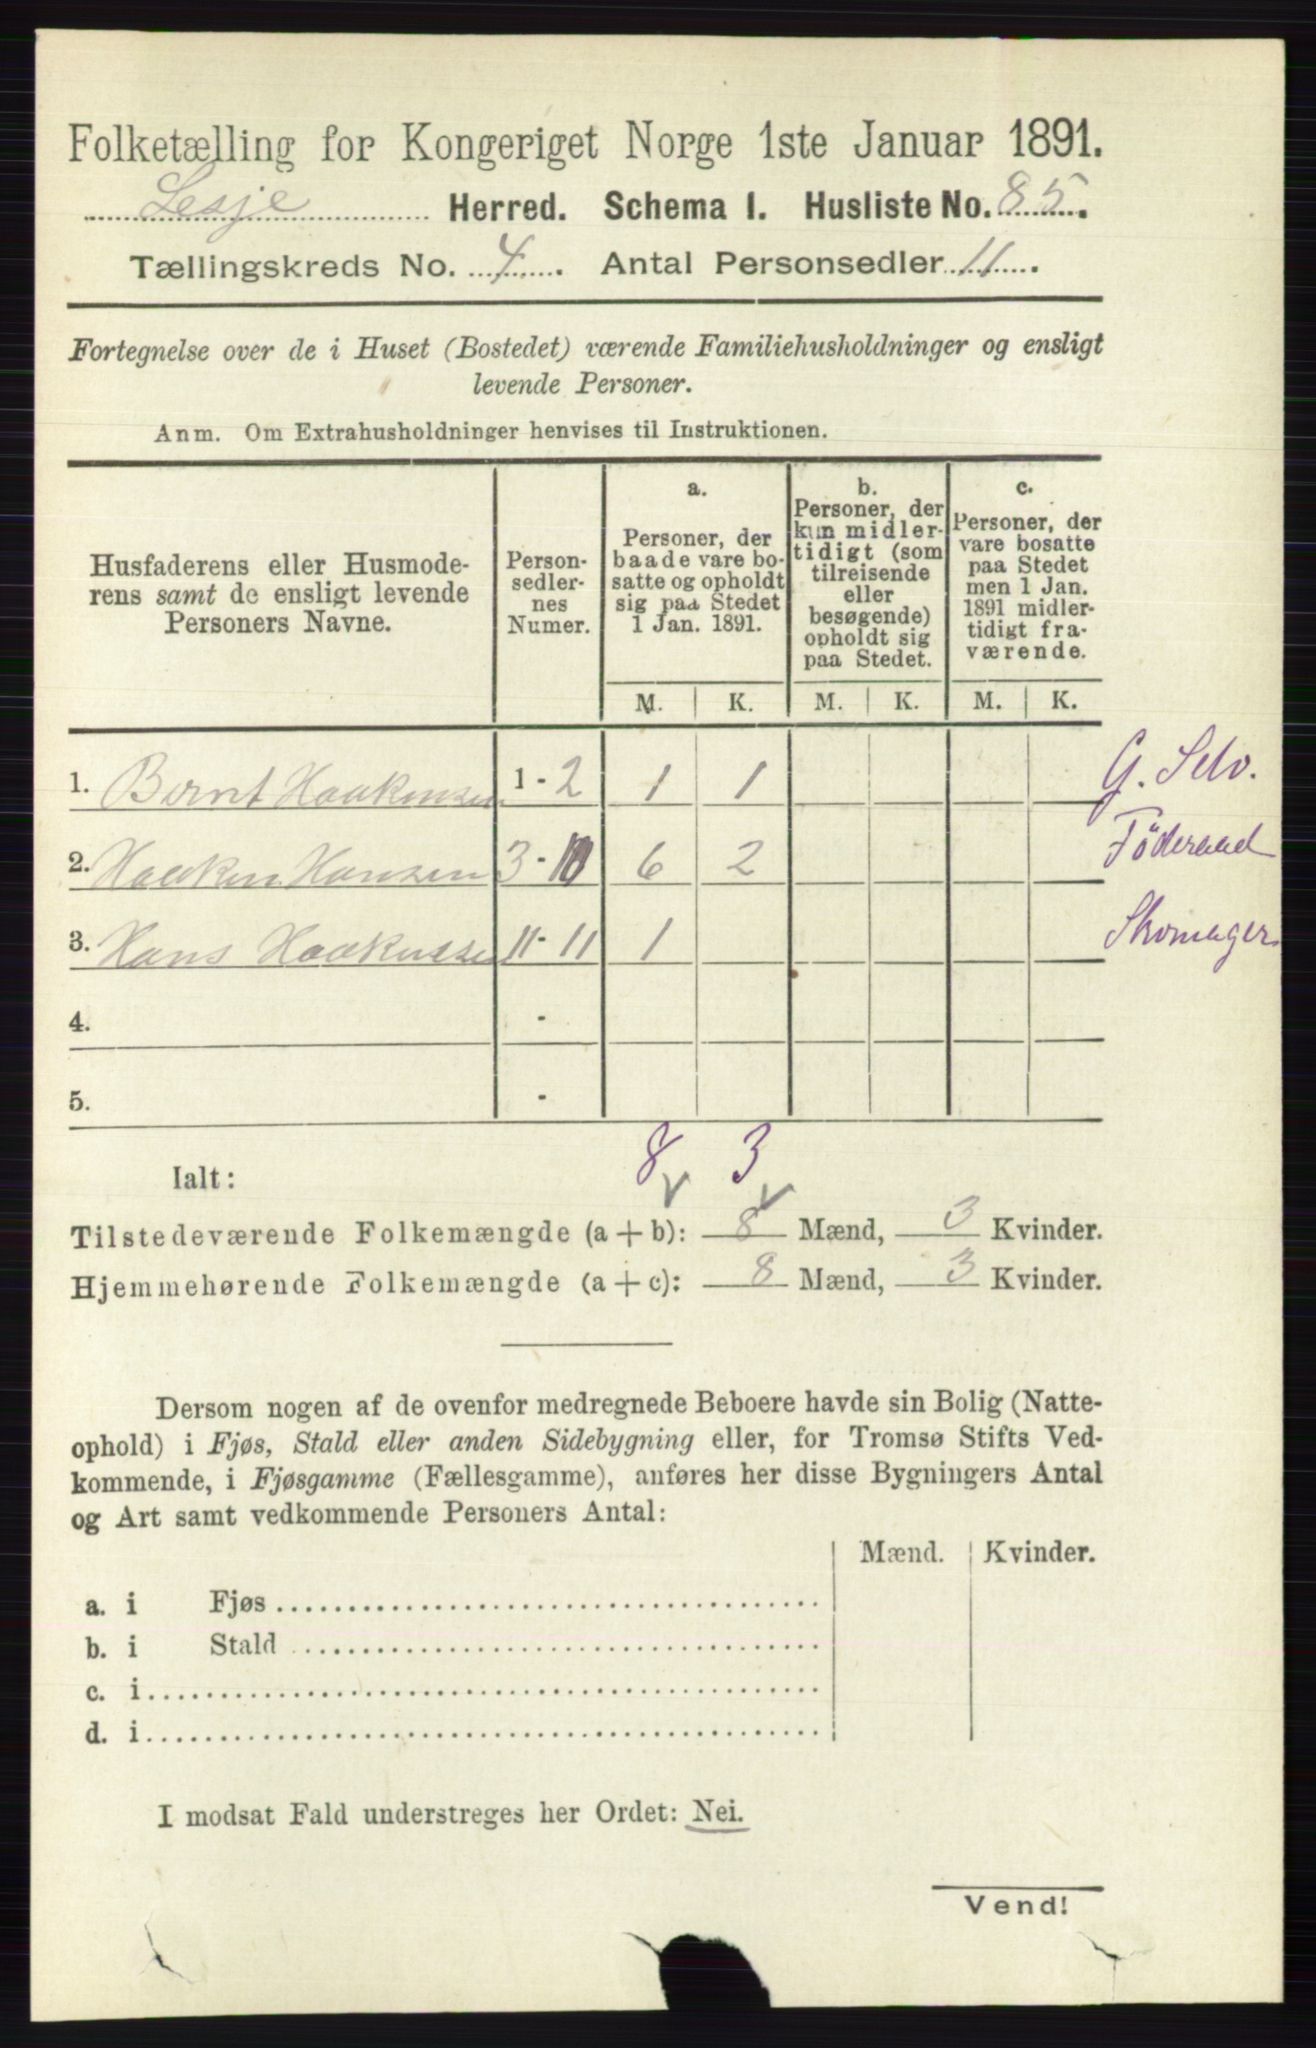 Folketælling for Kongeriget Norge 1ste Januar 1891.
Lesje Herred. Schema I. Husliste No. 85.
Tællingskreds No. 4. Antal Personsedler 11.
Fortegnelse over de i Huset (Bostedet) værende Familiehusholdninger og ensligt
levende Personer.
Anm. Om Extrahusholdninger henvises til Instruktionen.
Husfaderens eller Husmode-
rens samt de ensligt levende
Personers Navne.
Person-
sedler-
nes
Numer.
a.
Personer, der
baade vare bo-
satte og opholdt
sig paa Stedet
1 Jan. 1891.
b.
Personer, der
kun midler-
tidigt (som
tilreisende
eller
besøgende)
opholdt sig
paa Stedet.
c.
Personer, der
vare bosatte
paa Stedet
men 1 Jan.
1891 midler-
tidigt fra-
værende.
M. K. M. K. M. K.
1. Bernt Haakensen 1 - 2 1 1 G. Selv.
2. Haaken Hansen 3 - 10 6 2 Föderaad
3. Hans Haakensen 11 - 11 1 Skomager
4. -
5. -
Ialt: 8 3
Tilstedeværende Folkemængde (a + b): 8 Mænd, 3 Kvinder.
Hjemmehørende Folkemængde (a + c): 8 Mænd, 3 Kvinder.
Dersom nogen af de ovenfor medregnede Beboere havde sin Bolig (Natte-
ophold) i Fjøs, Stald eller anden Sidebygning eller, for Tromsø Stifts Ved-
kommende, i Fjøsgamme (Fællesgamme), anføres her disse Bygningers Antal
og Art samt vedkommende Personers Antal:
Mænd. Kvinder.
a. i Fjøs
b. i Stald
c. i
d. i
I modsat Fald understreges her Ordet: Nei.
Vend!